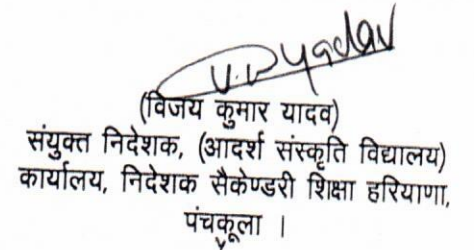 V.P Yadav
(विजय कुमार यादव)
संयुक्त निदेशक, (आदर्श संस्कृति विद्यालय)
कार्यालय, निदेशक सैकेण्डरी शिक्षा हरियाणा,
पंचकूला ।